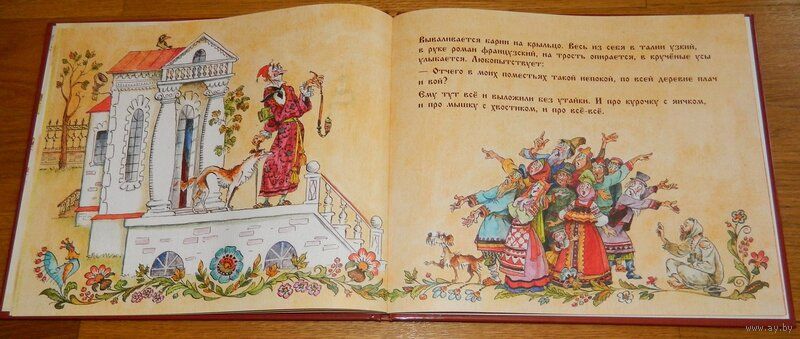 Вываливается барин на крыльцо. Весь из себя в талии узкий,
в руке роман французский, на трость опирается, в кручёные усы
улыбается. Любопытствует:
— Отчего в моих поместьях такой непокой, по всей деревне плач
и вой?
Ему тут всё и выложили без утайки. И про курочку с яичком,
и про мышку с хвостиком, и про всё-всё.
www.ay.by